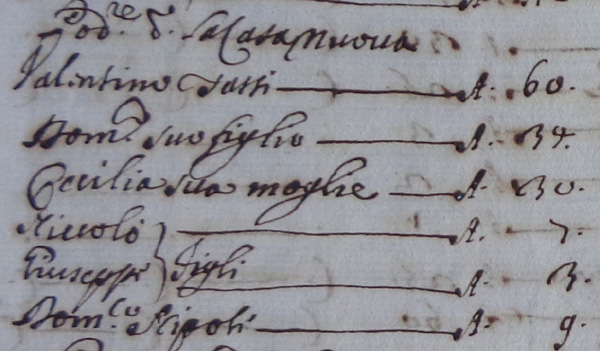 Pod.re d. la Casa Nuova
Valentino Tatti A. 60.
Dom.co suo figlio A. 34.
Cecilia sua moglie A. 30.
Niccolò A. 7.
Giuseppe } figli A. 3.
Dom.co Nipoti A. 9.